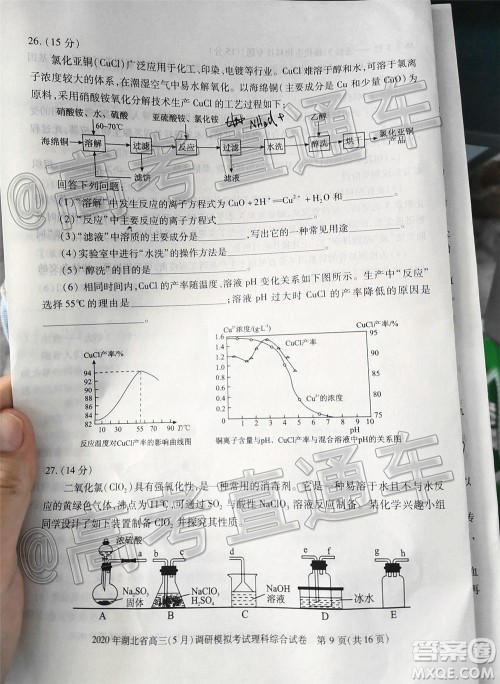 26. (15 分)
氯化亚铜(CuCl)广泛应用于化工、印染、电镀等行业。CuCl 难溶于醇和水,可溶于氯离
子浓度较大的体系,在潮湿空气中易水解氧化。以海绵铜(主要成分是 Cu 和少量 CuO)为
原料,采用硝酸铵氧化分解技术生产 CuCl 的工艺过程如下:
硝酸铵、水、硫酸 亚硫酸铵、氯化铵 乙醇
60~70℃
海绵铜 溶解 过滤 反应 过滤 水洗 醇洗 烘干 氯化亚铜
产品
滤饼 滤液
回答下列问题:
(1)“溶解”中发生的离子方程式为 CuO+2H⁺=Cu²⁺+H₂O 和
(2)“反应”中主要反应的离子方程式
(3)“滤液”中溶质的主要成分是 ,写出它的一种用途 。
(4)实验室中进行“水洗”的操作方法是
(5)“醇洗”的目的是 。
(6)相同时间内,CuCl 的产率随温度、溶液 pH 变化关系如下图所示。生产中“反应”
选择 55℃的理由是 ;溶液 pH 过大时 CuCl 的产率降低的原因是
。
CuCl产率/%
94
92
90
88
86
84
82
0 10 30 50 55 70 90 T/℃
反应温度对CuCl产率的影响曲线图
Cu²⁺浓度/(g·L⁻¹) CuCl产率/%
1.6
1.4
1.2
1.0
0.8
0.6
0.4
0.2
0.0
CuCl产率
Cu²⁺的浓度
95
90
85
80
75
0 2 4 6 8 10 pH
铜离子含量与pH、CuCl产率与混合溶液中pH的关系图
27. (14 分)
二氧化氯(ClO₂)具有强氧化性,是一种常用的消毒剂。它是一种易溶于水且不与水反
应的黄绿色气体,沸点为 11℃,可用亚硫酸钠与酸性 NaClO₃ 溶液反应制备。某化学兴趣小组
同学设计了如下装置制备 ClO₂ 并探究其性质。
浓硫酸
a b c d e f g h
Na₂SO₃
固体
NaClO₃
H₂SO₄
NaOH
溶液
冰水
A B C D E
2020 年湖北省高三(5 月)调研模拟考试理科综合试卷 第 9 页(共 16 页)
@高考直通车
@高考直通车